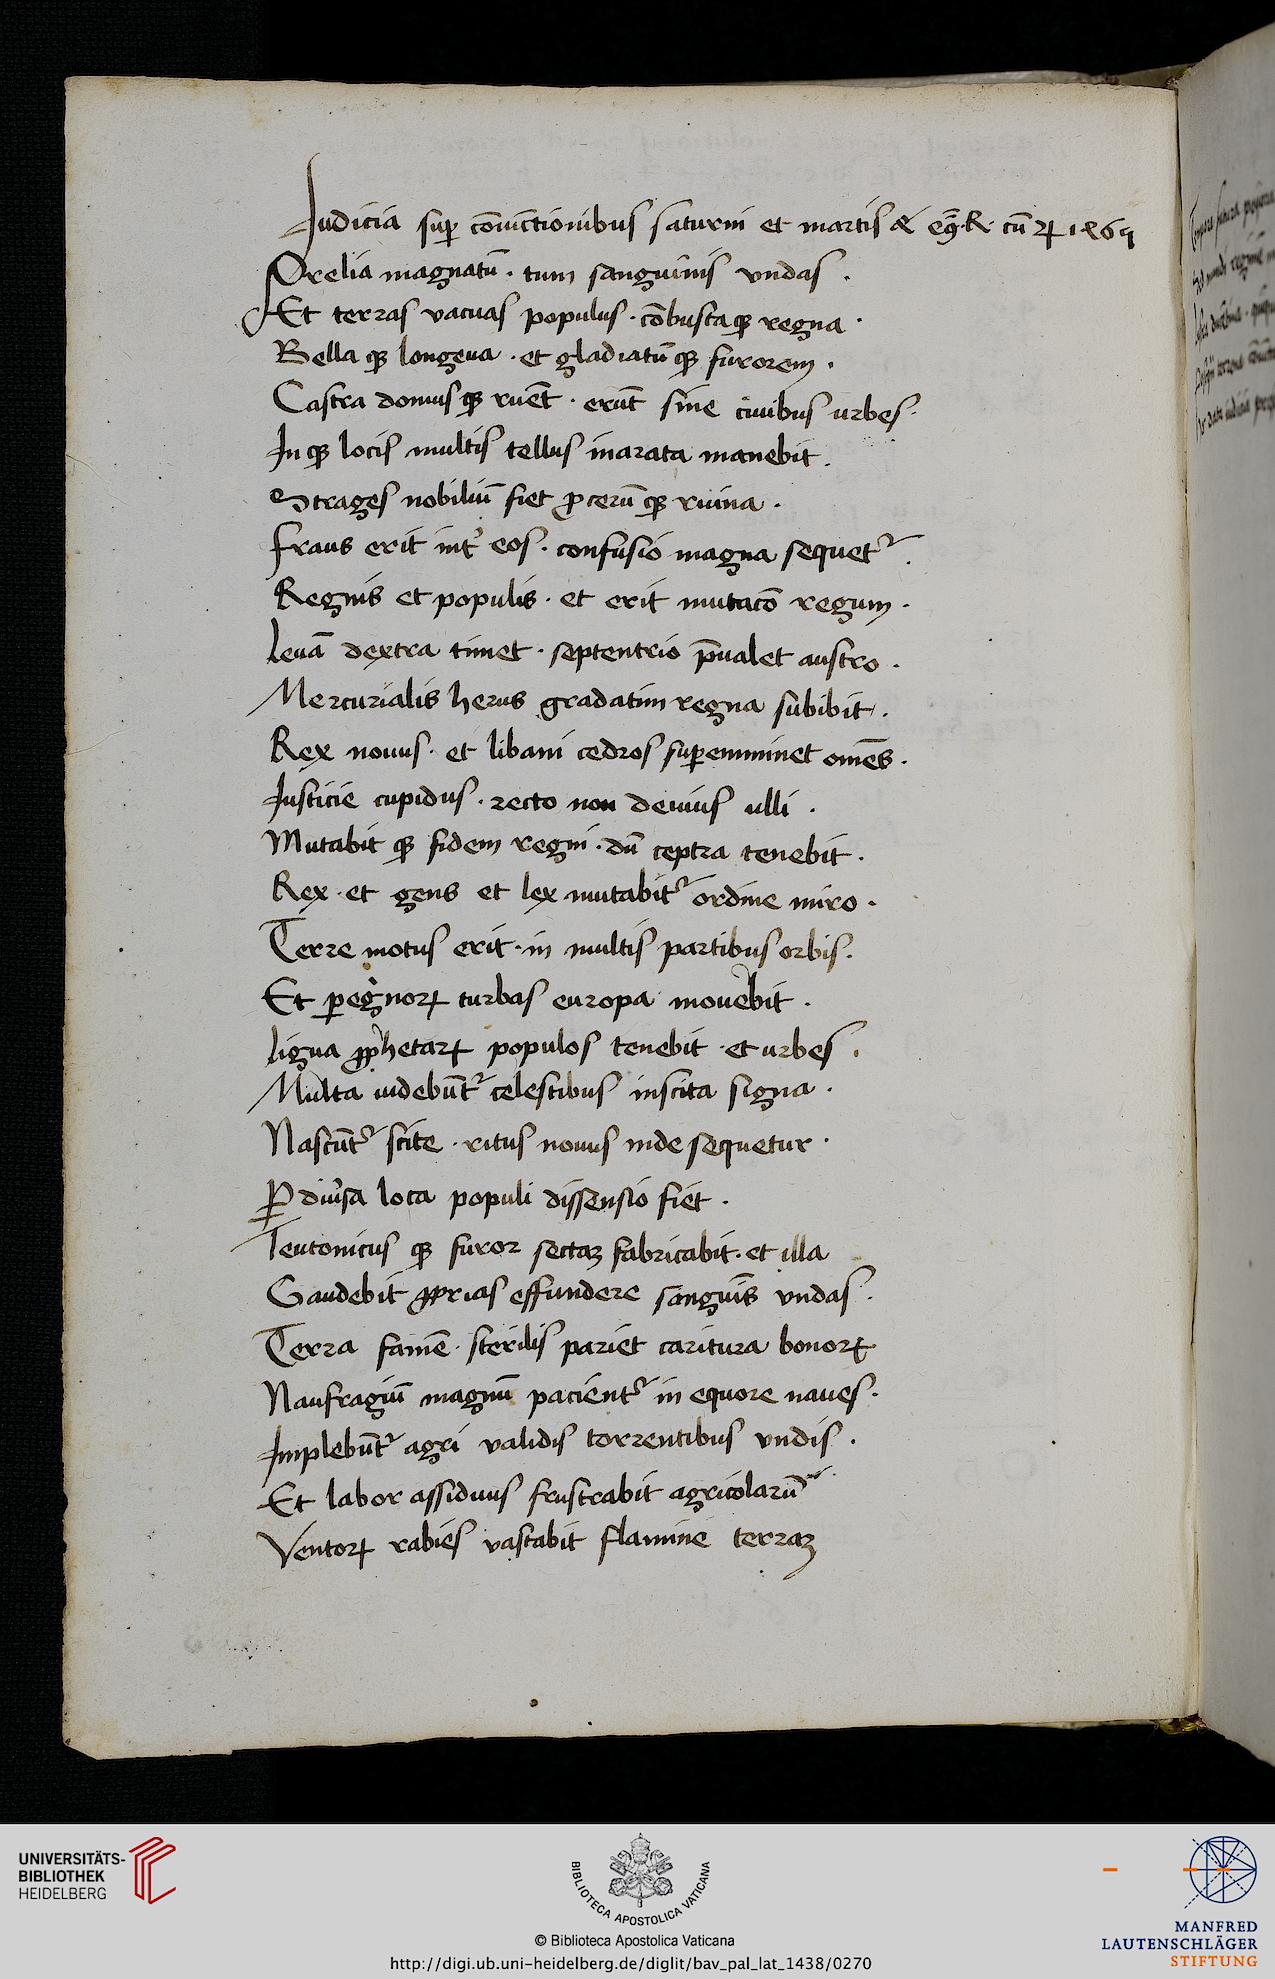 Iudicia sup̄ cōiuictionibus saturni et martis & cū ꝝ
Prelia magnatū · tum sanguinis vndas ·
Et terras vacuas populus · cōbustaqꝫ regna ·
Bella qꝫ longeua · et gladiatū qꝫ furorem ·
Castra domus qꝫ ruēt · erūt sine ciuibus urbes ·
In qꝫ locis multis tellus inarata manebit ·
Strages nobiliū fiet ꝓcerū qꝫ ruina ·
Fraus erit int̄ eos · confusio magna sequet᷑ ·
Regnis et populis · et erit mutacō regum ·
Leuā dextra timet · septentrio p̄ualet austro ·
Mercurialis herus gradatim regna subibit ·
Rex nouus · et libani cedros suꝑemminet om̄es ·
Iusticie cupidus · recto non deuius ulli ·
Mutabit qꝫ fidem regni · dū ceptra tenebit ·
Rex · et gens et lex mutabit᷑ ordine miro ·
Terre motus erit · in multis partibus orbis ·
Et ꝑegnoꝝ turbas europa mouebit ·
Ligua ꝓphetaꝝ populos tenebit · et urbes ·
Multa uidebūt᷑ celestibus inscita signa ·
Nascūt᷑ scite · ritus nouus inde sequetur ·
Ꝑ diu̓sa loca populi dissensio fiet ·
Teutonicus qꝫ furor sectaꝫ fabricabit · et illa
Gaudebit ꝓprias effundere sanguīs vndas ·
Terra famē · sterilis pariet caritura bonoꝝ
Naufragiū magnū pacient᷑ in equore naues ·
Implebūt᷑ agri validis torrentibus vndis ·
Et labor assiduus frustrabit agricolarū
Ventoꝝ rabies vastabit flamine terraꝫ
UNIVERSITÄTS-
BIBLIOTHEK
HEIDELBERG
BIBLIOTECA APOSTOLICA VATICANA
© Biblioteca Apostolica Vaticana
http://digi.ub.uni-heidelberg.de/diglit/bav_pal_lat_1438/0270
MANFRED
LAUTENSCHLÄGER
STIFTUNG